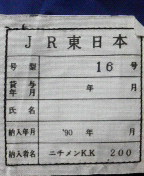 JR東日本
号型 16号
貸与年月 年 月
氏名
納入年月 '90 年 月
納入者名 ニチメンK.K 200